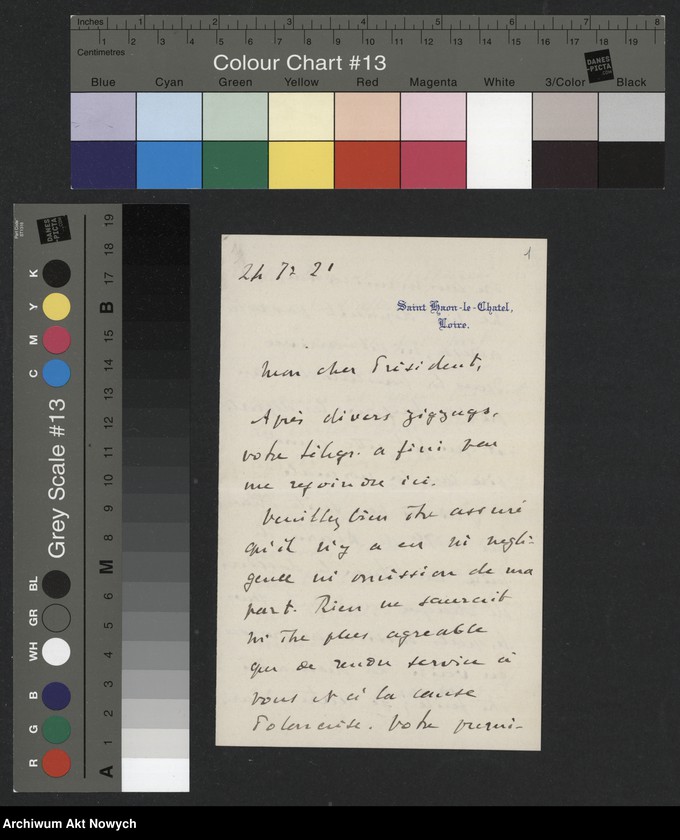 Inches 1 2 3 4 5 6 7 8
Centimetres 1 2 3 4 5 6 7 8 9 10 11 12 13 14 15 16 17 18 19
Colour Chart #13
DANES-PICTA.COM
Blue Cyan Green Yellow Red Magenta White 3/Color Black
Grey Scale #13
DANES-PICTA.COM
C M Y K
R G B WH GR BL
A 1 2 3 4 5 6 M 8 9 10 11 12 13 14 15 B 17 18 19
1
24 7re 21
Saint Haon-le-Chatel,
Loire.
Mon cher Président,
Après divers zigzags,
votre télégr. a fini par
me rejoindre ici.
Veuillez bien être assuré
qu'il n'y a eu ni négli-
gence ni omission de ma
part. Rien ne saurait
m'être plus agreable
que de rendre service à
vous et à la cause
Polonaise. Votre
Archiwum Akt Nowych